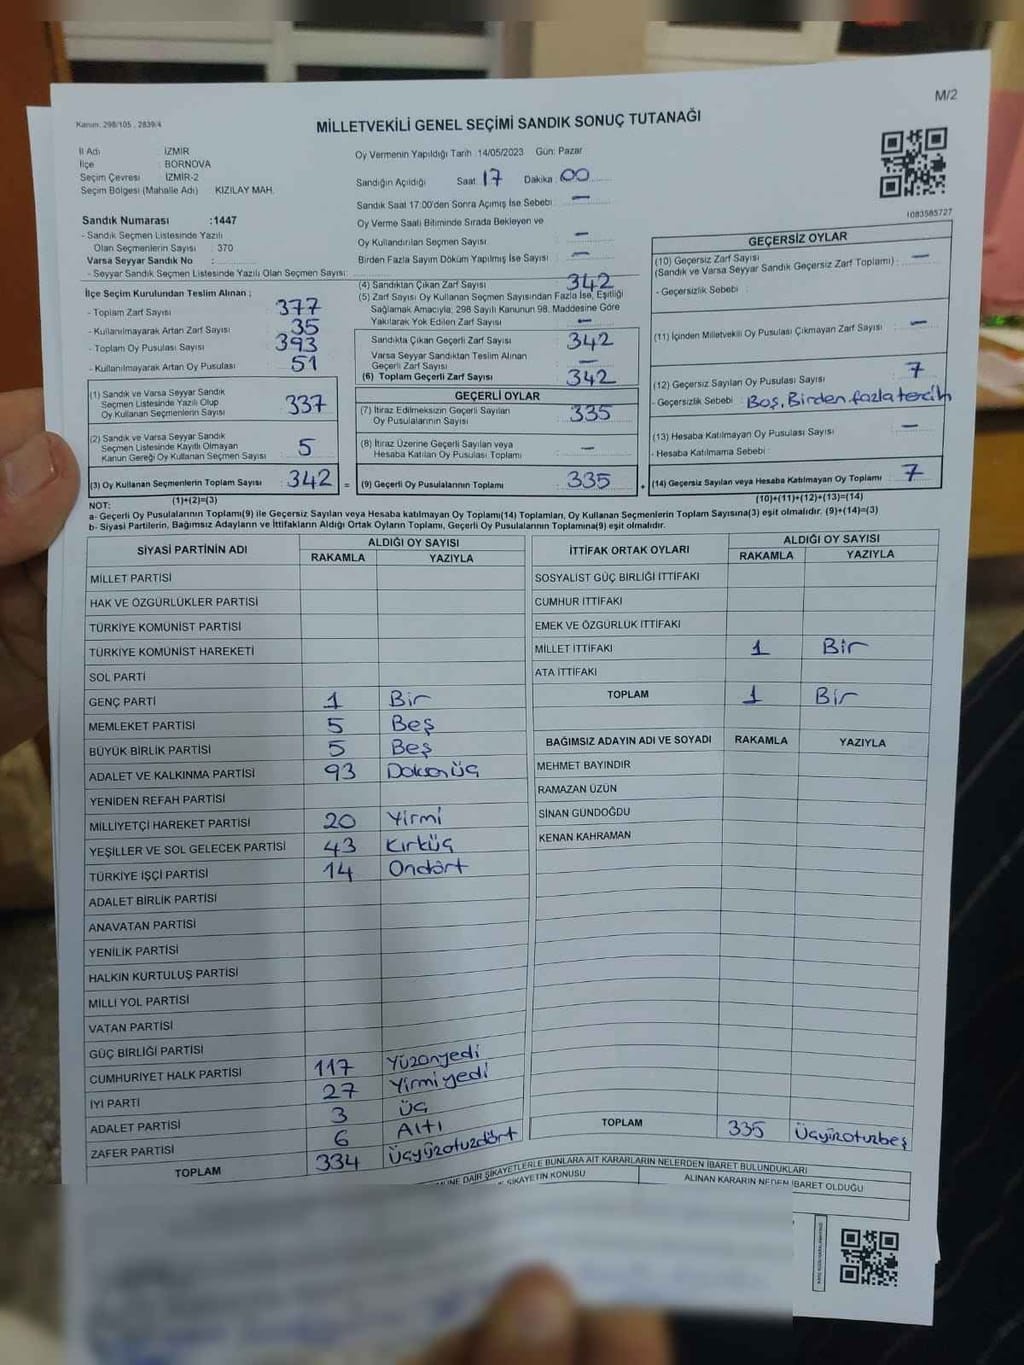 M/2
Kanun. 298/105 , 2839/4
MİLLETVEKİLİ GENEL SEÇİMİ SANDIK SONUÇ TUTANAĞI
İl Adı : İZMİR
İlçe : BORNOVA
Seçim Çevresi : İZMİR-2
Seçim Bölgesi (Mahalle Adı) : KIZILAY MAH.
Sandık Numarası :1447
- Sandık Seçmen Listesinde Yazılı
Olan Seçmenlerin Sayısı : 370
Varsa Seyyar Sandık No :
- Seyyar Sandık Seçmen Listesinde Yazılı Olan Seçmen Sayısı:
Oy Vermenin Yapıldığı Tarih :14/05/2023 Gün: Pazar
Sandığın Açıldığı Saat: 17 Dakika : 00
Sandık Saat 17:00'den Sonra Açımış İse Sebebi : —
Oy Verme Saati Bitiminde Sırada Bekleyen ve
Oy Kullandırılan Seçmen Sayısı : —
Birden Fazla Sayım Döküm Yapılmış İse Sayısı : —
1083585727
İlçe Seçim Kurulundan Teslim Alınan ;
- Toplam Zarf Sayısı : 377
- Kullanılmayarak Artan Zarf Sayısı : 35
- Toplam Oy Pusulası Sayısı : 393
- Kullanılmayarak Artan Oy Pusulası : 51
(1) Sandık ve Varsa Seyyar Sandık
Seçmen Listesinde Yazılı Olup
Oy Kullanan Seçmenlerin Sayısı : 337
(2) Sandık ve Varsa Seyyar Sandık
Seçmen Listesinde Kayıtlı Olmayan
Kanun Gereği Oy Kullanan Seçmen Sayısı : 5
(3) Oy Kullanan Seçmenlerin Toplam Sayısı : 342 =
(1)+(2)=(3)
(4) Sandıktan Çıkan Zarf Sayısı : 342
(5) Zarf Sayısı Oy Kullanan Seçmen Sayısından Fazla İse, Eşitliği
Sağlamak Amacıyla; 298 Sayılı Kanunun 98. Maddesine Göre
Yakılarak Yok Edilen Zarf Sayısı : —
Sandıkta Çıkan Geçerli Zarf Sayısı : 342
Varsa Seyyar Sandıktan Teslim Alınan
Geçerli Zarf Sayısı : —
(6) Toplam Geçerli Zarf Sayısı : 342
GEÇERLİ OYLAR
(7) İtiraz Edilmeksizin Geçerli Sayılan
Oy Pusulasının Sayısı : 335
(8) İtiraz Üzerine Geçerli Sayılan veya
Hesaba Katılan Oy Pusulası Toplamı : —
(9) Geçerli Oy Pusulalarının Toplamı : 335 +
GEÇERSİZ OYLAR
(10) Geçersiz Zarf Sayısı
(Sandık ve Varsa Seyyar Sandık Geçersiz Zarf Toplamı) : —
- Geçersizlik Sebebi :
(11) İçinden Milletvekili Oy Pusulası Çıkmayan Zarf Sayısı : —
(12) Geçersiz Sayılan Oy Pusulası Sayısı : 7
- Geçersizlik Sebebi : Boş, Birden fazla tercih
(13) Hesaba Katılmayan Oy Pusulası Sayısı : —
- Hesaba Katılmama Sebebi :
(14) Geçersiz Sayılan veya Hesaba Katılmayan Oy Toplamı : 7
(10)+(11)+(12)+(13)=(14)
NOT:
a- Geçerli Oy Pusulalarının Toplamı(9) ile Geçersiz Sayılan veya Hesaba katılmayan Oy Toplamı(14) Toplamları, Oy Kullanan Seçmenlerin Toplam Sayısına(3) eşit olmalıdır. (9)+(14)=(3)
b- Siyasi Partilerin, Bağımsız Adayların ve İttifakların Aldığı Ortak Oyların Toplamı, Geçerli Oy Pusulalarının Toplamına(9) eşit olmalıdır.
SİYASİ PARTİNİN ADI ALDIĞI OY SAYISI
RAKAMLA YAZIYLA
MİLLET PARTİSİ
HAK VE ÖZGÜRLÜKLER PARTİSİ
TÜRKİYE KOMÜNİST PARTİSİ
TÜRKİYE KOMÜNİST HAREKETİ
SOL PARTİ
GENÇ PARTİ 1 Bir
MEMLEKET PARTİSİ 5 Beş
BÜYÜK BİRLİK PARTİSİ 5 Beş
ADALET VE KALKINMA PARTİSİ 93 Doksanüç
YENİDEN REFAH PARTİSİ
MİLLİYETÇİ HAREKET PARTİSİ 20 Yirmi
YEŞİLLER VE SOL GELECEK PARTİSİ 43 Kırküç
TÜRKİYE İŞÇİ PARTİSİ 14 Ondört
ADALET BİRLİK PARTİSİ
ANAVATAN PARTİSİ
YENİLİK PARTİSİ
HALKIN KURTULUŞ PARTİSİ
MİLLİ YOL PARTİSİ
VATAN PARTİSİ
GÜÇ BİRLİĞİ PARTİSİ
CUMHURİYET HALK PARTİSİ 117 Yüzonyedi
İYİ PARTİ 27 Yirmiyedi
ADALET PARTİSİ 3 Üç
ZAFER PARTİSİ 6 Altı
TOPLAM 334 Üçyüzotuzdört
İTTİFAK ORTAK OYLARI ALDIĞI OY SAYISI
RAKAMLA YAZIYLA
SOSYALİST GÜÇ BİRLİĞİ İTTİFAKI
CUMHUR İTTİFAKI
EMEK VE ÖZGÜRLÜK İTTİFAKI
MİLLET İTTİFAKI 1 Bir
ATA İTTİFAKI
TOPLAM 1 Bir
BAĞIMSIZ ADAYIN ADI VE SOYADI RAKAMLA YAZIYLA
MEHMET BAYINDIR
RAMAZAN ÜZÜN
SİNAN GÜNDOĞDU
KENAN KAHRAMAN
TOPLAM 335 Üçyüzotuzbeş
DAİR ŞİKAYETLERLE BUNLARA AİT KARARLARIN NELERDEN İBARET BULUNDUKLARI
ŞİKAYETİN KONUSU ALINAN KARARIN NEDEN İBARET OLDUĞU